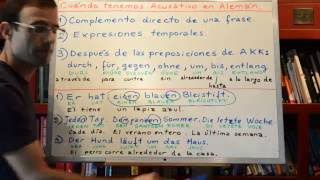 Cuándo tenemos Acusativo en Alemán.
1) Complemento directo de una frase.
2) Expresiones temporales.
3) Después de las preposiciones de AKK:
durch, für, gegen, ohne, um, bis, entlang
a través de para contra sin alrededor de hasta a lo largo de
1) Er hat einen blauen Bleistift.
El tiene un lápiz azul.
2) Jeden Tag. Den ganzen Sommer. Die letzte Woche
Cada día. El verano entero. La última semana.
3) Der Hund läuft um das Haus.
El perro corre alrededor de la casa.